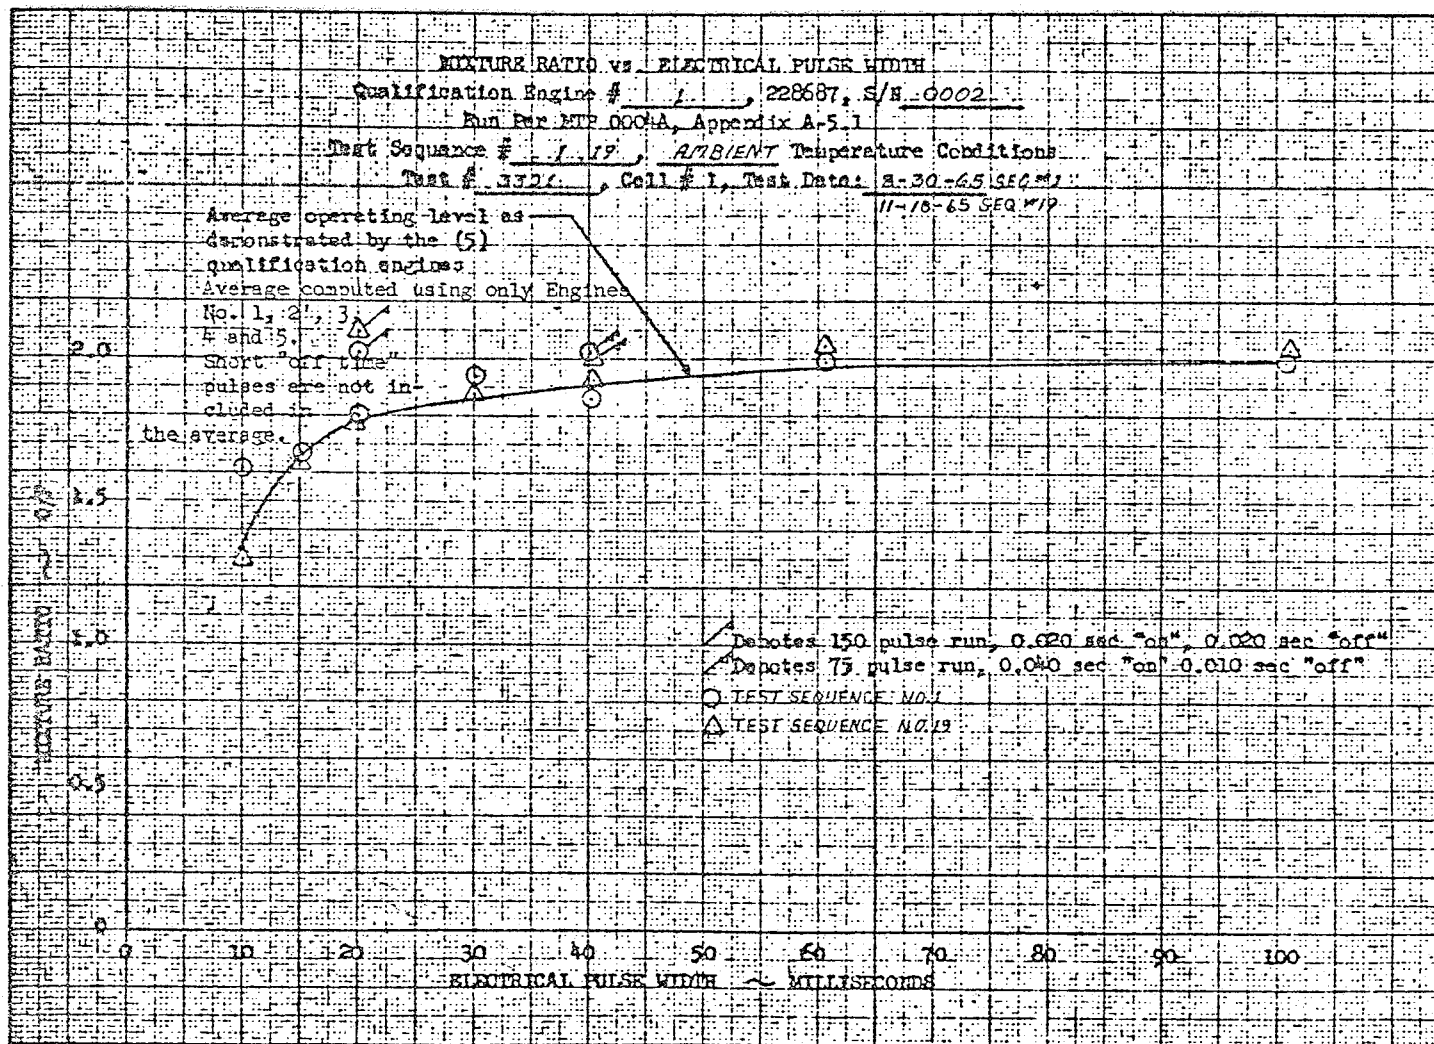 MIXTURE RATIO vs. ELECTRICAL PULSE WIDTH
Qualification Engine # 1, 228687, S/N 0002
Run Per MTP 0004A, Appendix A-5.1
Test Sequence # 1, 19, AMBIENT Temperature Conditions
Test # , Cell # 1, Test Date: 8-30-65 SEQ #1
11-18-65 SEQ #19
Average operating level as
demonstrated by the (5)
qualification engines
Average computed using only Engines
No. 1, 2', 3,
4 and 5.
Short "off time"
pulses are not in-
cluded in
the average.
2.0
1.5
1.0
0.5
0
MIXTURE RATIO ~ O/F
Denotes 150 pulse run, 0.020 sec "on", 0.020 sec "off"
Denotes 75 pulse run, 0.040 sec "on" 0.010 sec "off"
TEST SEQUENCE NO.1
TEST SEQUENCE NO.19
0 10 20 30 40 50 60 70 80 90 100
ELECTRICAL PULSE WIDTH ~ MILLISECONDS